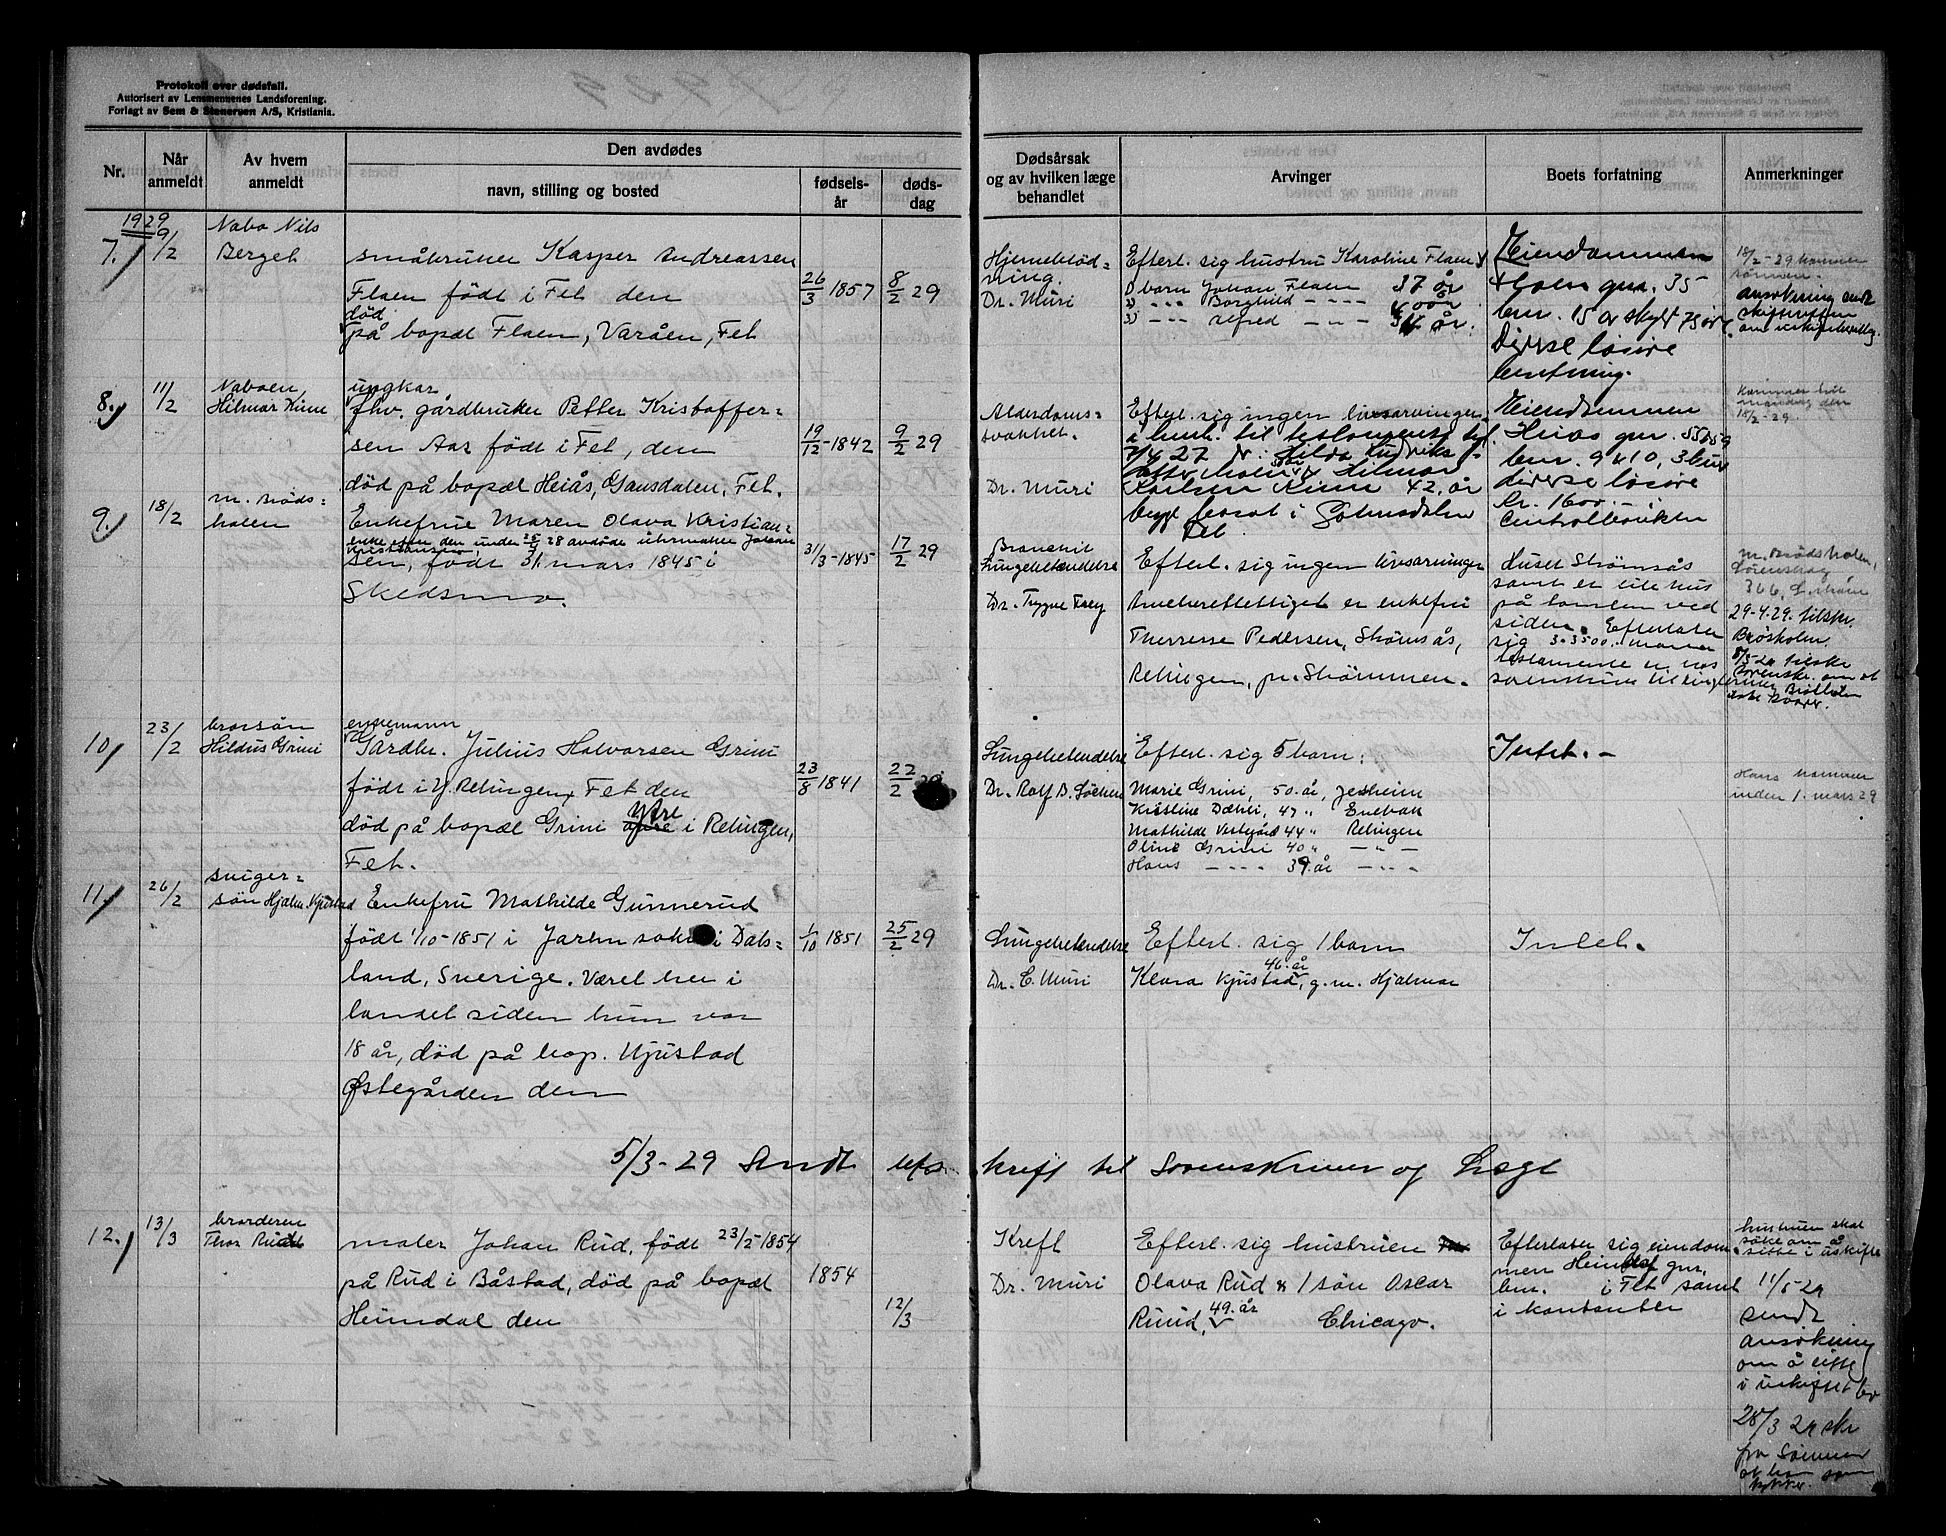 Protokoll over dødsfall.
Autorisert av Lensmennenes Landsforening.
Forlagt av Sem & Stenersen A/S, Kristiania.
Nr.
Når anmeldt
Av hvem anmeldt
Den avdødes
navn, stilling og bosted
fødsels-år
døds-dag
Dødsårsak og av hvilken læge behandlet
Arvinger
Boets forfatning
Anmerkninger
1929
7. 9/2
Nabo Nils
Berget
småbruker Kasper Andreassen
Flaen født i Fet den
26/3 1857 8/2 29
død
på bopæl Flaen, Varåen, Fet
Hjerneblød=
ning.
Dr. Muri
Efterl. sig hustru Karoline Flaen
1) barn Johan Flaen 37 år
2) " " " Borghild - - - - 40 år
3) - - - Alfred - - - 34 år.
Eiendommen
Hoen gnr. 35
bnr. 15 av skyld 75 øre
Diverse løsøre
18/2-29 kommer
sønnen.
ansøkning sendt
skifteretten
8. 11/2
Naboen
Hilmar Kinne
ungkar
fhv. gårdbruker Petter Kristoffer=
sen Aas født i Fet, den
19/12-1842 9/2 29
død på bopæl Heiås, Gansdalen, Fet.
Alderdoms=
svakhet.
Dr. Muri
Efterl. sig ingen livsarvinger
i henh. til testamente
7/4 27 Hilda
Hilmar
Karlsen Kinne 42 år
bosat i Gansdalen
Fet
Eiendommen
Heiås gnr. 55
bnr. 9 & 10, 3 kur
diverse løsøre
Kr. 1600.-
Kommer hit
mandag den
18/2-29.
9. 18/2
m. Brøds=
hallen
Enkefrue Maren Olava Kristian=
enke efter den under 25/7 28 avdøde uhrmaker Johan
Kristiansen,
sen, født 31. mars 1845 i
31/3-1845 17/2 29
Skedsmo.
Bronchit
Lungebetændelse
Dr. Trygve Frey
Efterl. sig ingen livsarvinger
Arveberettiget er enkefru
Therresse Pedersen, Strømsås,
Relingen, pr. Strømmen.
Huset Strømsås
samt et lite hus
på tomten ved
siden. Efterlater
sig 3-3500
testamente er hos
m. Brødsholen,
29-4.29. tilskr.
Brøsholm.
10. 23/2
brorsøn
Hildus Grini
enkemann
Gårdbr. Julius Halvorsen Grini
født i Y. Relingen, Fet den
23/8 1841 22/2 29
død på bopæl Grini Ytre i Relingen,
Fet.
Lungebetændelse
Dr. Rolf B.
Efterl. sig 5 barn:
Marie Grini, 50. år, Jesheim
Kristine Dæhli, 47 " Enebak
Mathilde Vestgård 44 " Relingen
Oline Grini 40 " - " -
Hans - - - - 39. år - - - -
Intet. -
Hans kommer
inden 1. mars 29
11. 26/2
sviger=
søn Hjalm. Kjustad
Enkefru Mathilde Gunnerud
født 1/10-1851 i Jarbn sokn i Dals=
1/10 1851 25/2 29
land, Sverige. Været her i
landet siden hun var
18 år, død på bop. Kjustad
Østegården den
Lungebetændelse
Dr. C. Muri
Efterl. sig 1 barn
46. år
Klara Kjustad, g.m. Hjalmar
Intet.
5/3-29 Sendt utskrift til Sorenskriver og Læge
12. 13/3
broderen
Thor Ruud
maler Johan Rud, født 23/5-1854
på Rud i Båstad, død på bopæl
1854
Heimdal den
12/3
Kreft
Dr. Muri
Efterl. sig hustruen
Olava Rud & 1 søn Oscar
49. år
Ruud, Chicago.
Efterlater sig eiendom=
men Heimdal gnr.
bnr. i Fet samt
i kontanter
hustruen skal
søke om å
sitte i uskifte
11/5 29
sendt
ansøkning
om å sitte
i uskiftet bo
28/3 29 skr
fra Sønnen
at han